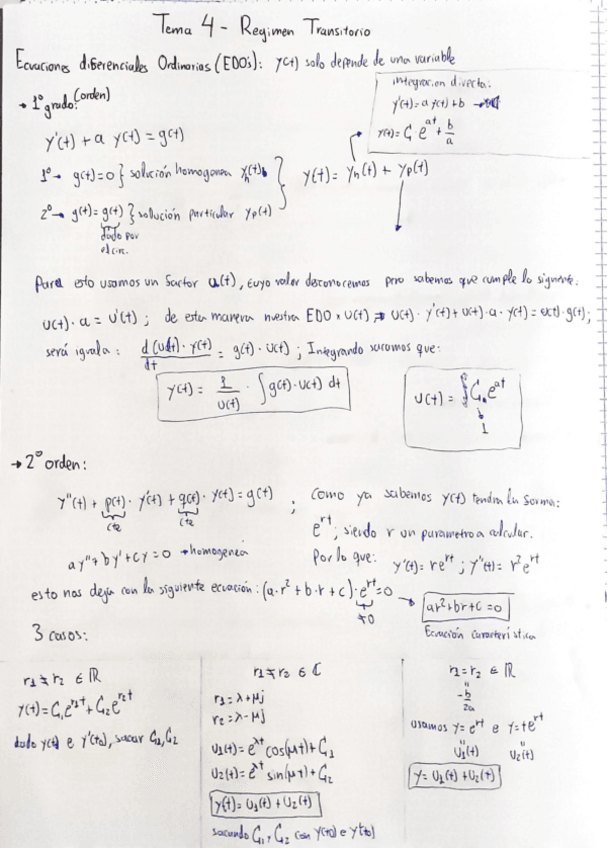 Tema 4 - Regimen Transitorio
Ecuaciones diferenciales Ordinarias (EDO's): y(t) solo depende de una variable
→ 1º grado: (orden)
integracion directa:
y'(t) = a y(t) + b →
y(t) = C₁ e^{at} + b/a
y'(t) + a y(t) = g(t)
1º → g(t) = 0 } solución homogenea yₕ(t)
y(t) = yₕ(t) + yₚ(t)
2º → g(t) = g(t) } solución particular yₚ(t)
dado por
el circ.
Para esto usamos un factor u(t), cuyo valor desconocemos pero sabemos que cumple lo siguiente:
u(t) · a = u'(t) ; de esta manera nuestra EDO x u(t) ⇒ u(t) · y'(t) + u(t) · a · y(t) = u(t) · g(t);
será igual a: d(u(t) · y(t))/dt = g(t) · u(t) ; Integrando sacamos que:
y(t) = 1/u(t) · ∫ g(t) · u(t) dt
u(t) = C₁ e^{at}
1
→ 2º orden:
y''(t) + p(t) · y'(t) + q(t) · y(t) = g(t) ; como ya sabemos y(t) tendra la forma:
cte cte
e^{rt} ; siendo r un parametro a calcular.
ay'' + by' + cy = 0 → homogenea
Por lo que: y'(t) = re^{rt} ; y''(t) = r² e^{rt}
esto nos deja con la siguiente ecuación: (a·r² + b·r + c) · e^{rt} = 0 → ar² + br + c = 0
≠0
Ecuación característica
3 casos:
r₁ ≠ r₂ ∈ ℝ
y(t) = C₁e^{r₁t} + C₂e^{r₂t}
dado y(t) e y'(t₀), sacar C₁, C₂
r₁ ≠ r₂ ∈ ℂ
r₁ = λ + μj
r₂ = λ - μj
u₁(t) = e^{λt} cos(μt) + C₁
u₂(t) = e^{λt} sin(μt) + C₂
y(t) = u₁(t) + u₂(t)
sacando C₁, C₂ con y(t₀) e y'(t₀)
r₁ = r₂ ∈ ℝ
"
-b/2a
usamos y = e^{rt} e y = te^{rt}
" "
u₁(t) u₂(t)
y = u₁(t) + u₂(t)